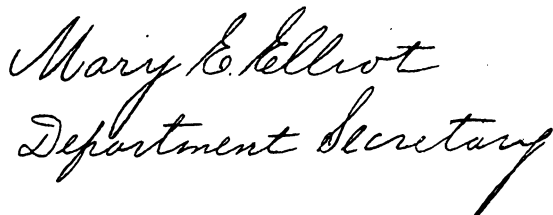 Mary E. Elliot
Department Secretary